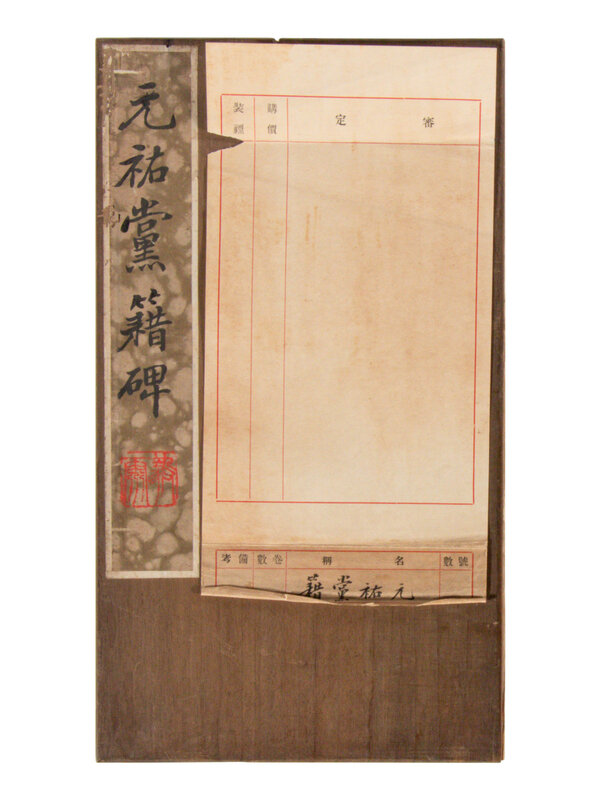 元祐黨籍碑
審定
購價
裝禮
號數
名稱
卷數
備考
元祐黨籍